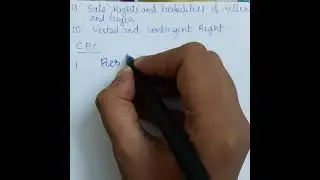 9) Sale Rights and liabilities of seller
and buyer
10) Vested and contingent Right
C.P.C
1. Res